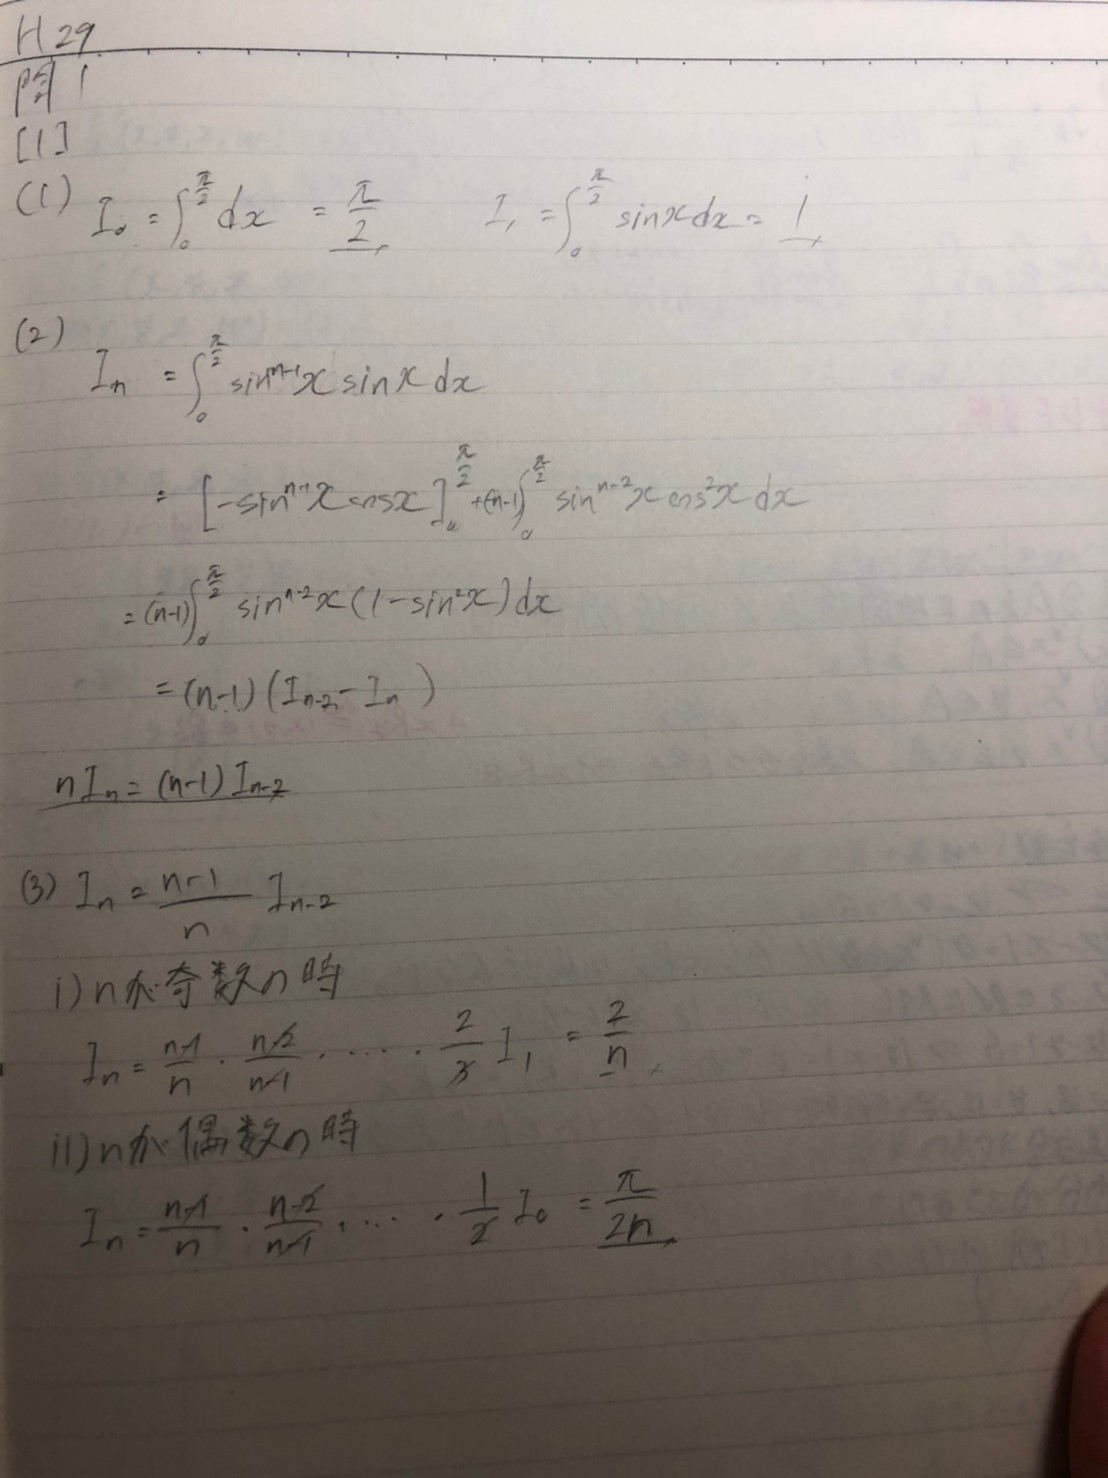 H29
問1
[1]
(1) I₀ = ∫₀^{π/2} dx = π/2 I₁ = ∫₀^{π/2} sinx dx = 1
(2)
Iₙ = ∫₀^{π/2} sin^{n-1}x sinx dx
= [-sin^{n-1}x cosx]₀^{π/2} + (n-1)∫₀^{π/2} sin^{n-2}x cos²x dx
= (n-1)∫₀^{π/2} sin^{n-2}x (1-sin²x) dx
= (n-1)(I_{n-2} - Iₙ)
nIₙ = (n-1)I_{n-2}
(3) Iₙ = (n-1)/n I_{n-2}
i) nが奇数の時
Iₙ = (n-1)/n · (n-2)/(n-1) · ···· · 2/3 I₁ = 2/n
ii) nが偶数の時
Iₙ = (n-1)/n · (n-2)/(n-1) · ··· · 1/2 I₀ = π/2n